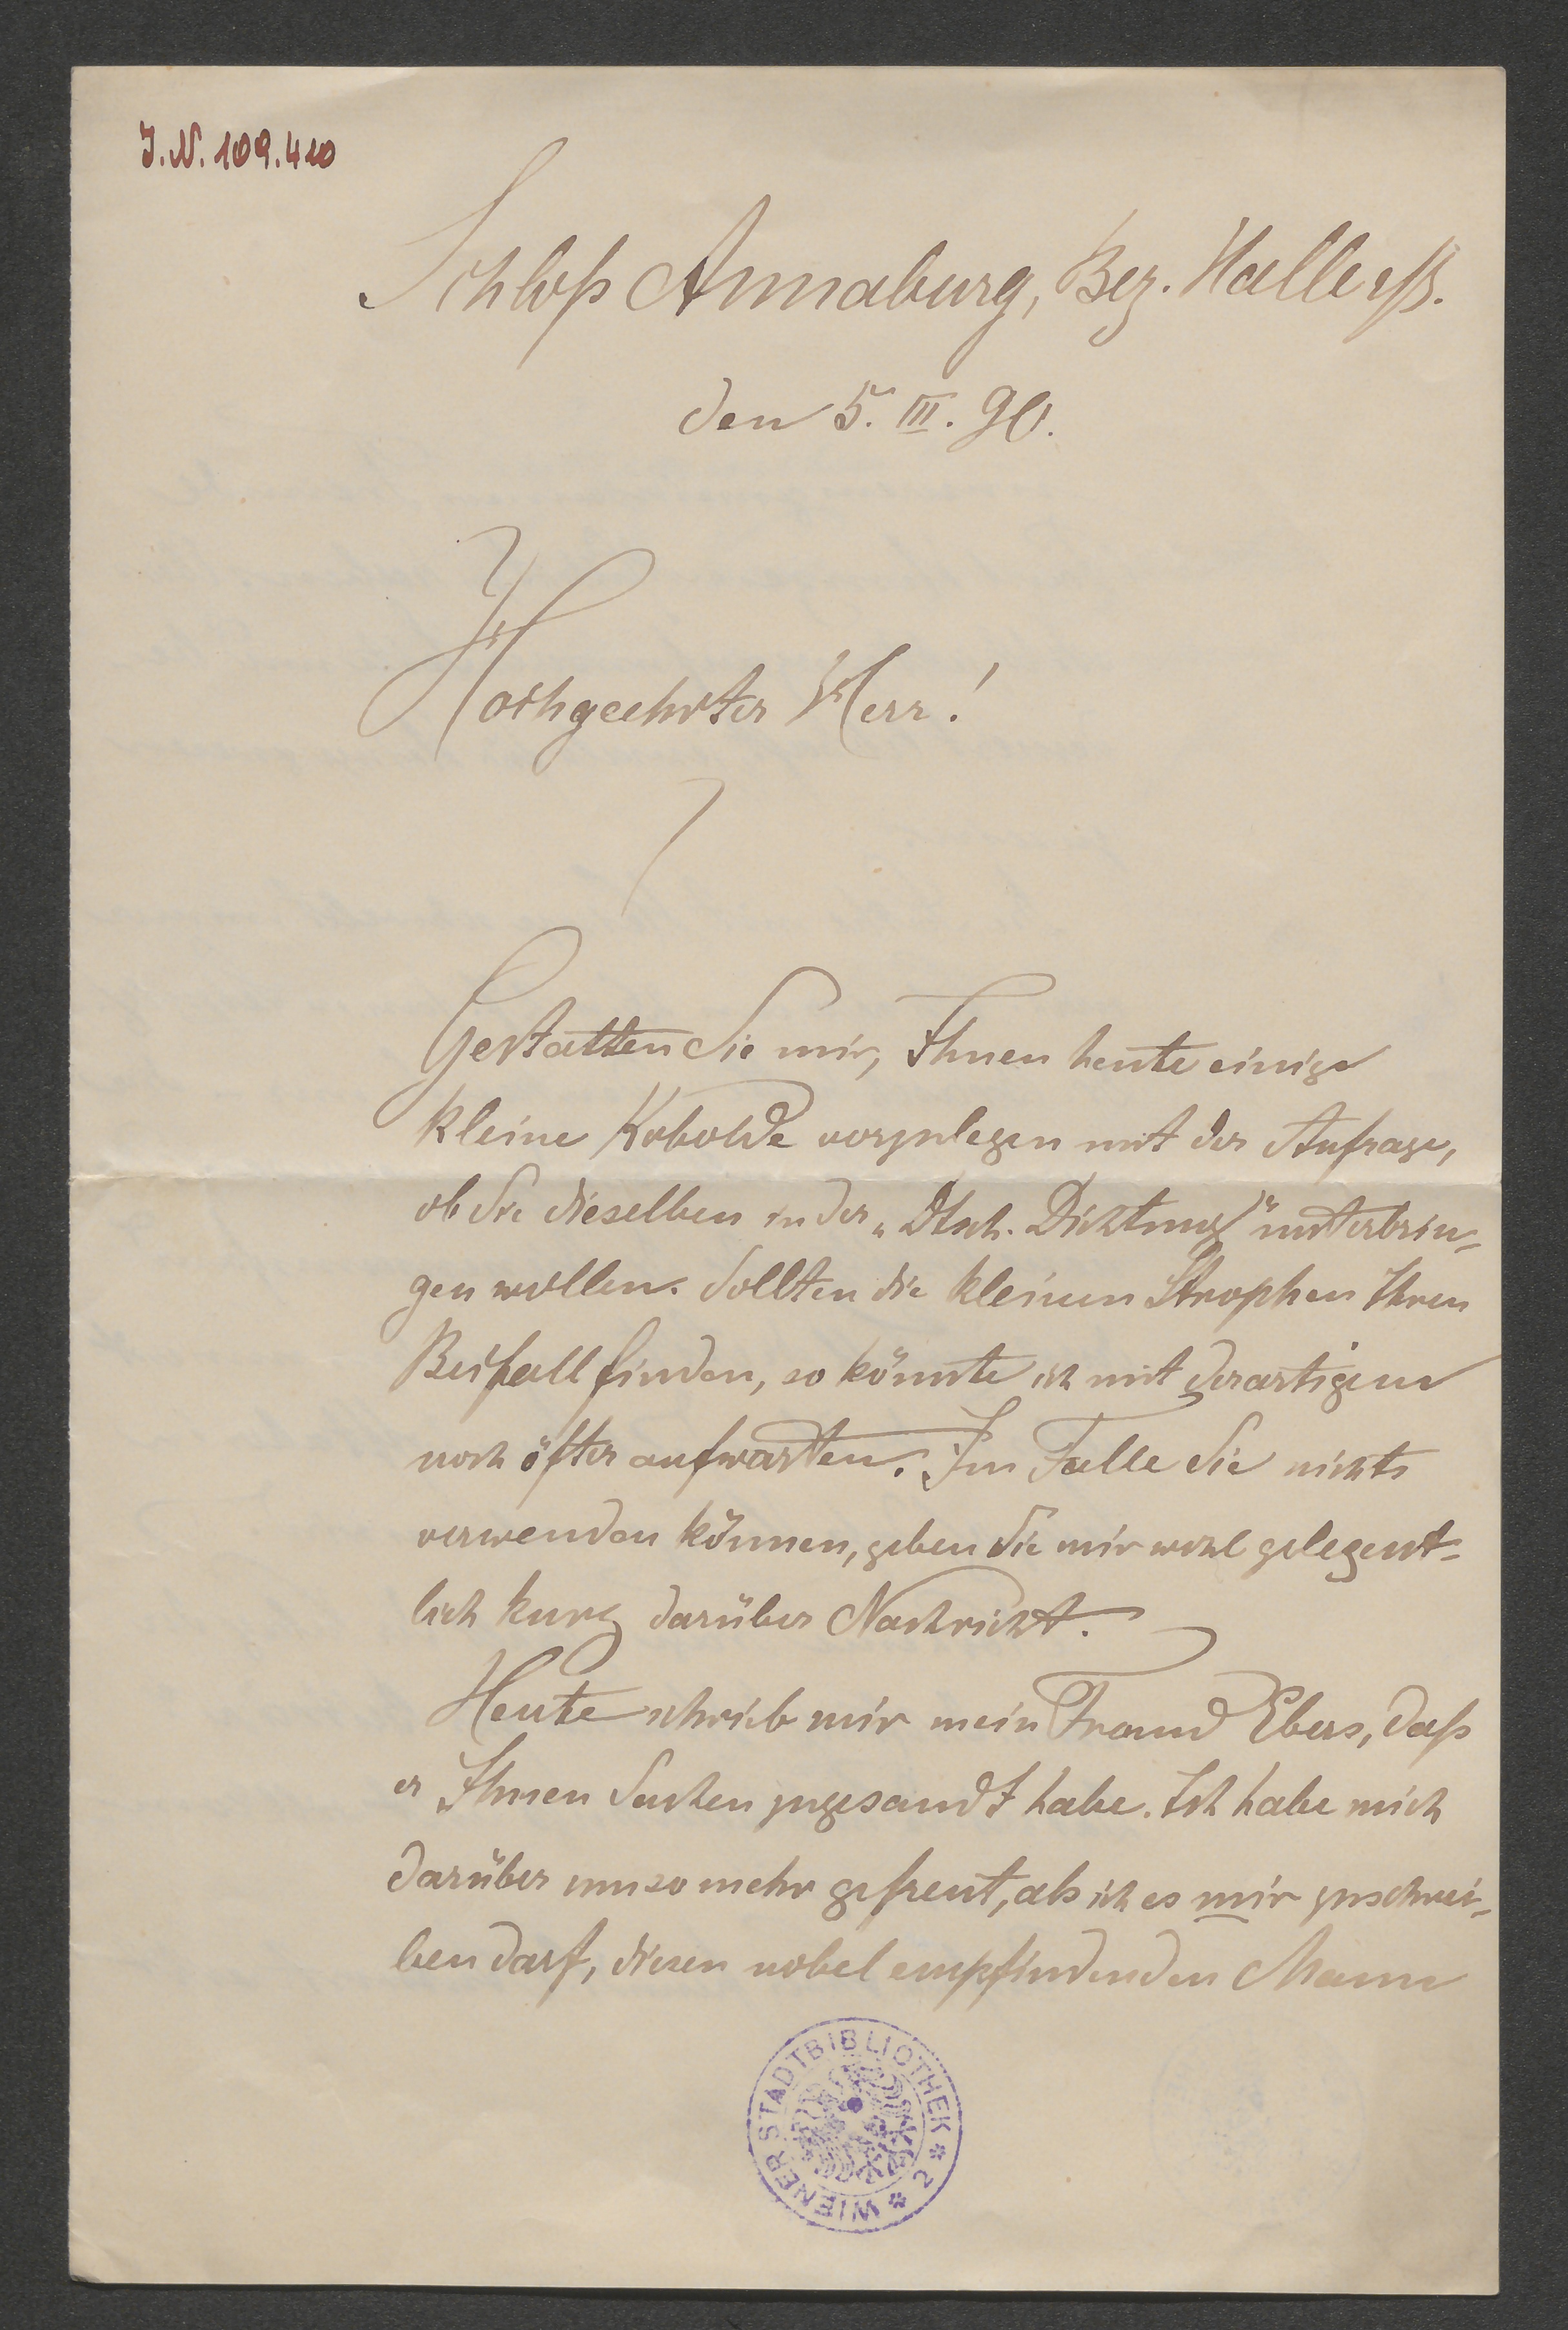 J.N. 109.410
Schloß Annaburg, Bez. Halle a/S.
den 5. III. 90.
Hochgeehrter Herr!
Gestatten Sie mir, Ihnen heute einige
kleine Kobolde vorzulegen mit der Anfrage,
ob Sie dieselben in der „Dtsch. Dichtung" unterbrin-
gen wollen. Sollten die kleinen Strophen Ihren
Beifall finden, so könnte ich mit derartigem
noch öfter aufwarten. Im Falle Sie nichts
verwenden können, geben Sie mir wohl gelegent-
lich kurz darüber Nachricht.
Heute schrieb mir mein Freund Ebers, daß
er Ihnen Sachen zugesandt habe. Ich habe mich
darüber umso mehr gefreut, als ich es mir zuschrei-
ben darf, diesen nobel empfindenden Mann
WIENER STADTBIBLIOTHEK * 2 *